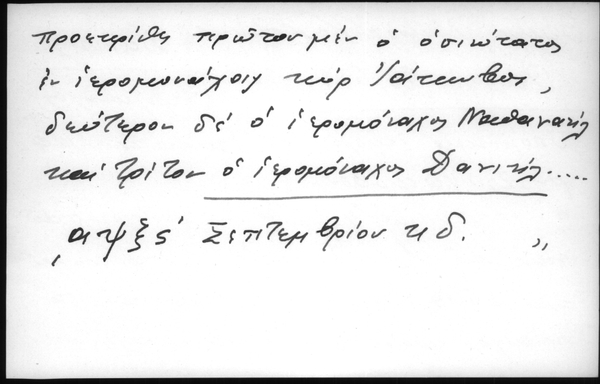 προεκρίθη πρῶτον μέν ὁ ὁσιώτατος
ἐν ἱερομονάχοις κύρ Ἰάκωβος,
δεύτερον δέ ὁ ἱερομόναχος Ναθαναήλ
καί τρίτον ὁ ἱερομόναχος Δανιήλ.....
͵αψξς΄ Σεπτεμβρίου κδ. "